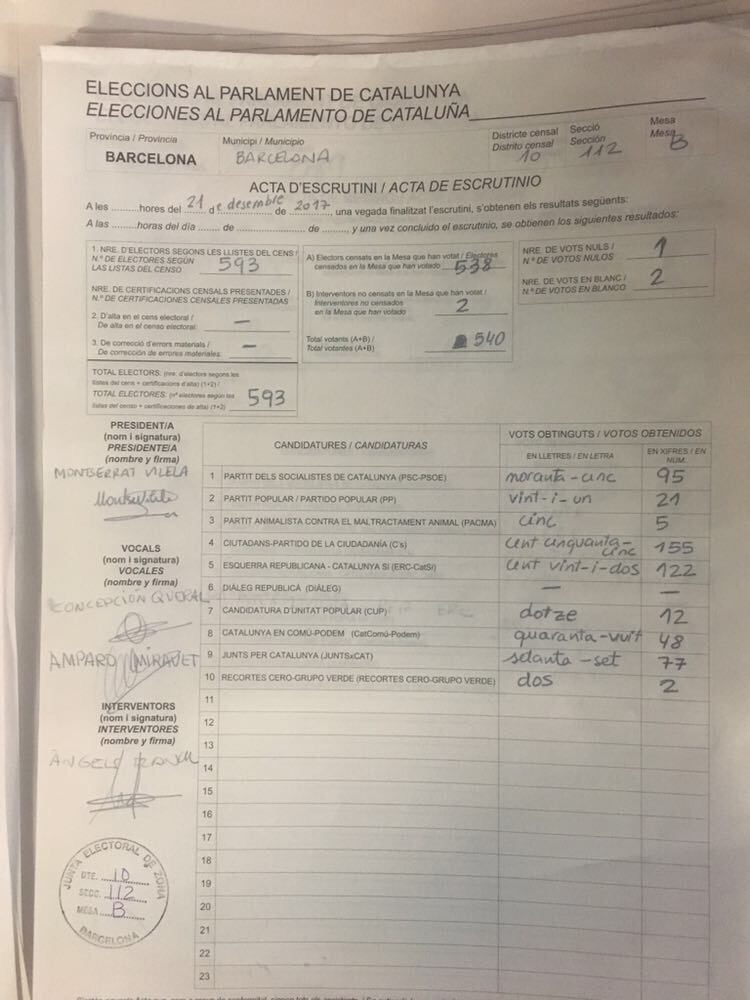 ELECCIONS AL PARLAMENT DE CATALUNYA
ELECCIONES AL PARLAMENTO DE CATALUÑA
Provincia / Provincia
BARCELONA
Municipi / Municipio
BARCELONA
Districte censal
Distrito censal
10
Secció
Sección
112
Mesa
Mesa
B
ACTA D'ESCRUTINI / ACTA DE ESCRUTINIO
A les ..........hores del 21 de desembre de 2017, una vegada finalitzat l'escrutini, s'obtenen els resultats següents:
A las ..........horas del día ........ de .................. de ........, y una vez concluido el escrutinio, se obtienen los siguientes resultados:
1. NRE. D'ELECTORS SEGONS LES LLISTES DEL CENS /
N.º DE ELECTORES SEGÚN
LAS LISTAS DEL CENSO
593
NRE. DE CERTIFICACIONS CENSALS PRESENTADES /
N.º DE CERTIFICACIONES CENSALES PRESENTADAS
2. D'alta en el cens electoral /
De alta en el censo electoral: —
3. De correcció d'errors materials /
De corrección de errores materiales: —
TOTAL ELECTORS: (nre. d'electors segons les
llistes del cens + certificacions d'alta) (1+2) /
TOTAL ELECTORES: (nº electores según las
listas del censo + certificaciones de alta) (1+2)
593
A) Electors censats en la Mesa que han votat / Electores
censados en la Mesa que han votado
538
B) Interventors no censats en la Mesa que han votat /
Interventores no censados
en la Mesa que han votado
2
Total votants (A+B) /
Total votantes (A+B)
540
NRE. DE VOTS NULS /
N.º DE VOTOS NULOS
1
NRE. DE VOTS EN BLANC /
N.º DE VOTOS EN BLANCO
2
PRESIDENT/A
(nom i signatura)
PRESIDENTE/A
(nombre y firma)
MONTSERRAT VILELA
VOCALS
(nom i signatura)
VOCALES
(nombre y firma)
CONCEPCIÓN QUERAL
AMPARO MIRAVET
INTERVENTORS
(nom i signatura)
INTERVENTORES
(nombre y firma)
ÀNGELS
JUNTA ELECTORAL DE ZONA
DTE. 10
SECC. 112
MESA B
BARCELONA
CANDIDATURES / CANDIDATURAS
VOTS OBTINGUTS / VOTOS OBTENIDOS
EN LLETRES / EN LETRA
EN XIFRES / EN NÚM.
1 PARTIT DELS SOCIALISTES DE CATALUNYA (PSC-PSOE) noranta-cinc 95
2 PARTIT POPULAR / PARTIDO POPULAR (PP) vint-i-un 21
3 PARTIT ANIMALISTA CONTRA EL MALTRACTAMENT ANIMAL (PACMA) cinc 5
4 CIUTADANS-PARTIDO DE LA CIUDADANÍA (C's) cent cinquanta-cinc 155
5 ESQUERRA REPUBLICANA - CATALUNYA SÍ (ERC-CatSí) cent vint-i-dos 122
6 DIÀLEG REPUBLICÀ (DIÀLEG) — —
7 CANDIDATURA D'UNITAT POPULAR (CUP) dotze 12
8 CATALUNYA EN COMÚ-PODEM (CatComú-Podem) quaranta-vuit 48
9 JUNTS PER CATALUNYA (JUNTSxCAT) setanta-set 77
10 RECORTES CERO-GRUPO VERDE (RECORTES CERO-GRUPO VERDE) dos 2
11
12
13
14
15
16
17
18
19
20
21
22
23